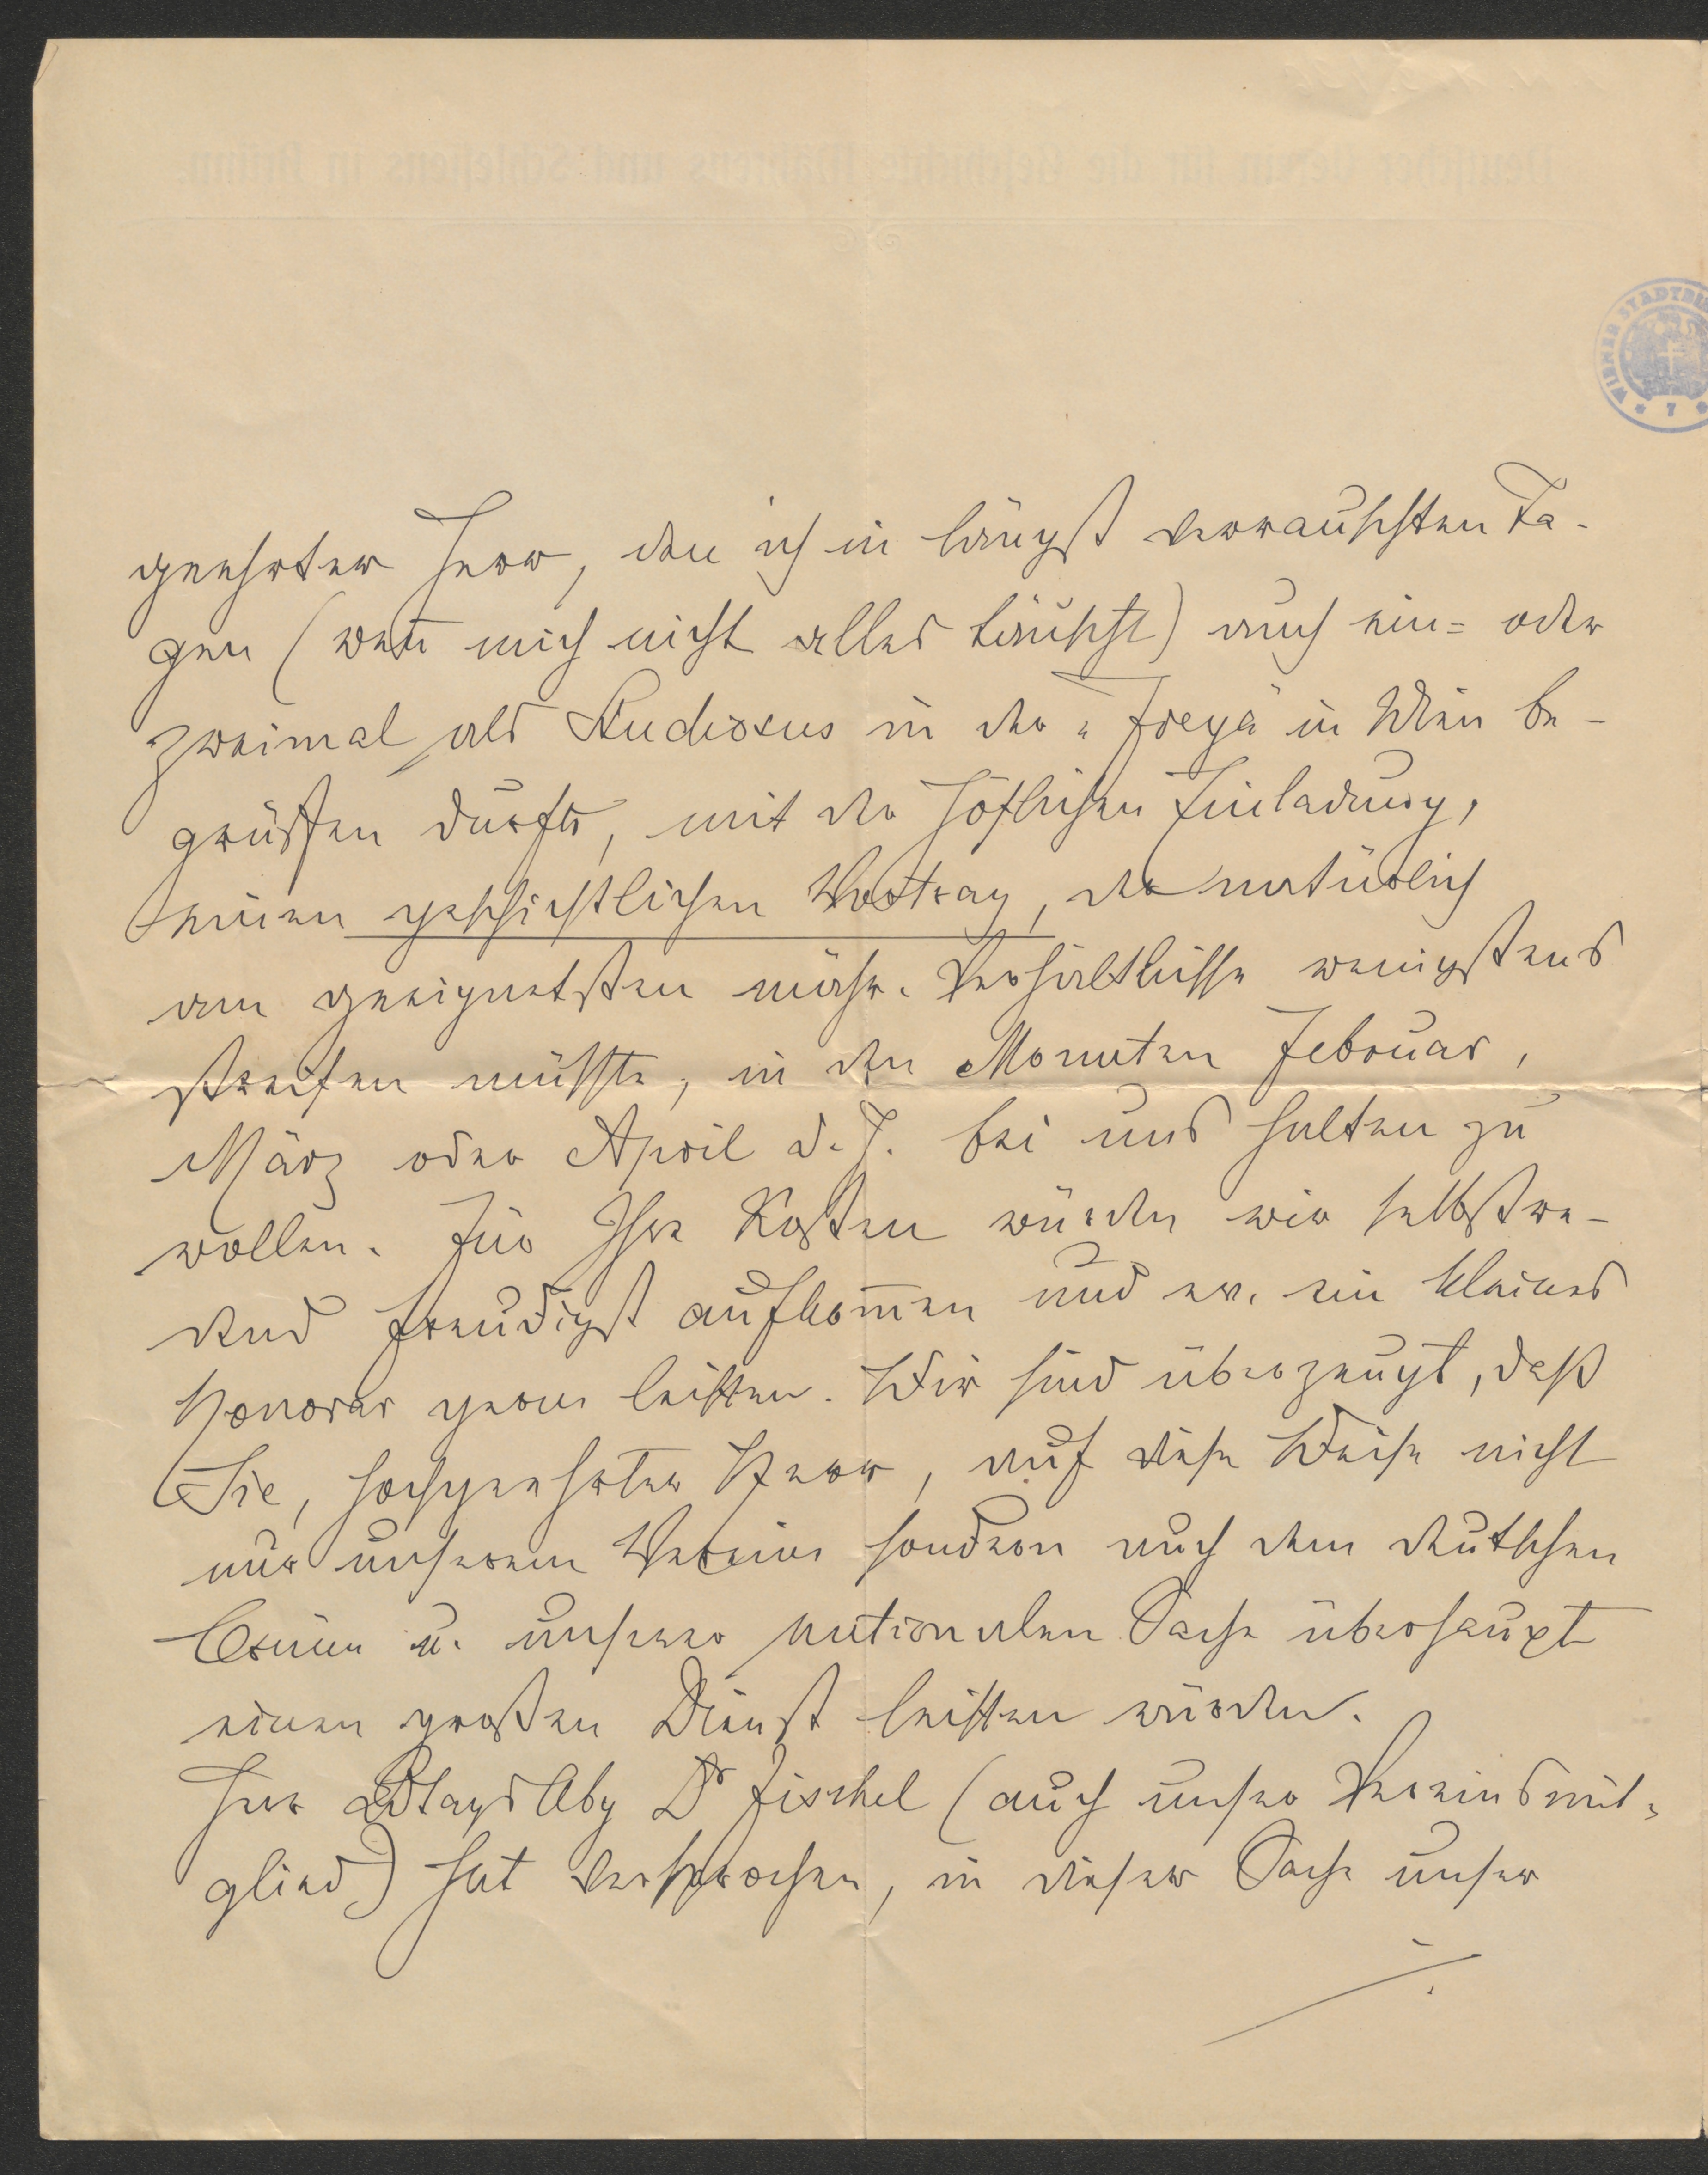 Deutscher Verein für die Geschichte Mährens und Schlesiens in Brünn
WIENER STADTBI
* 7 *
geehrter Herr, den ich in längst verrauschten Ta-
gen (wen̄ mich nicht alles täuscht) auch ein= oder
zweimal als Studiosus in der „Freya" in Wien be-
grüßen durfte, mit der höflichen Einladung,
einen geschichtlichen Vortrag, der natürlich
am geeignetsten mähr. Verhältnisse wenigstens
streifen müßte, in den Monaten Februar,
März oder April d. J. bei uns halten zu
wollen. Für Ihre Kosten würden wir selbstre-
dend freudigst aufkom̄en und ev. ein kleines
Honorar gerne leisten. Wir sind überzeugt, daß
Sie, hochgeehrter Herr, auf diese Weise nicht
nur unserem Vereine sondern auch dem deutschen
Brünn u. unserer nationalen Sache überhaupt
einen großen Dienst leisten würden.
Herr Abg Dr Fischel (auch unser Vereinsmit=
glied) hat versprochen, in dieser Sache unser